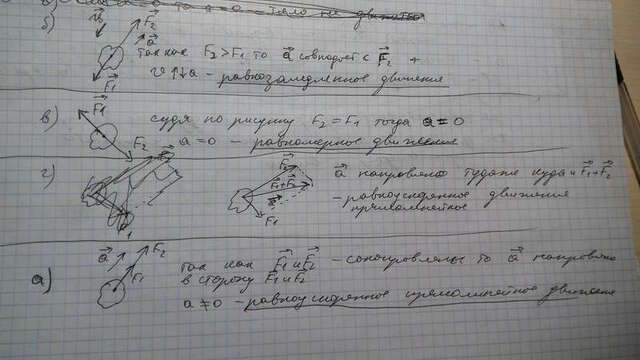 б) v F₂ a⃗
так как F₂ > F₁ то a⃗ совпадает с F⃗₂ +
v↑↓a - равнозамедленное движение
F⃗₁
F⃗₁
в) судя по рисунку F₂ = F₁ тогда a = 0
F₂ a = 0 - равномерное движение
г) F⃗₂ a⃗ направлено туда же куда и F⃗₁+F⃗₂
F⃗₁+F⃗₂ - равноускоренное движение
F⃗₁ прямолинейное
а) a⃗ F⃗₂ F₁
так как F⃗₁ и F⃗₂ - сонаправлены то a⃗ направлено
в сторону F⃗₁ и F⃗₂
a ≠ 0 - равноускоренное прямолинейное движение